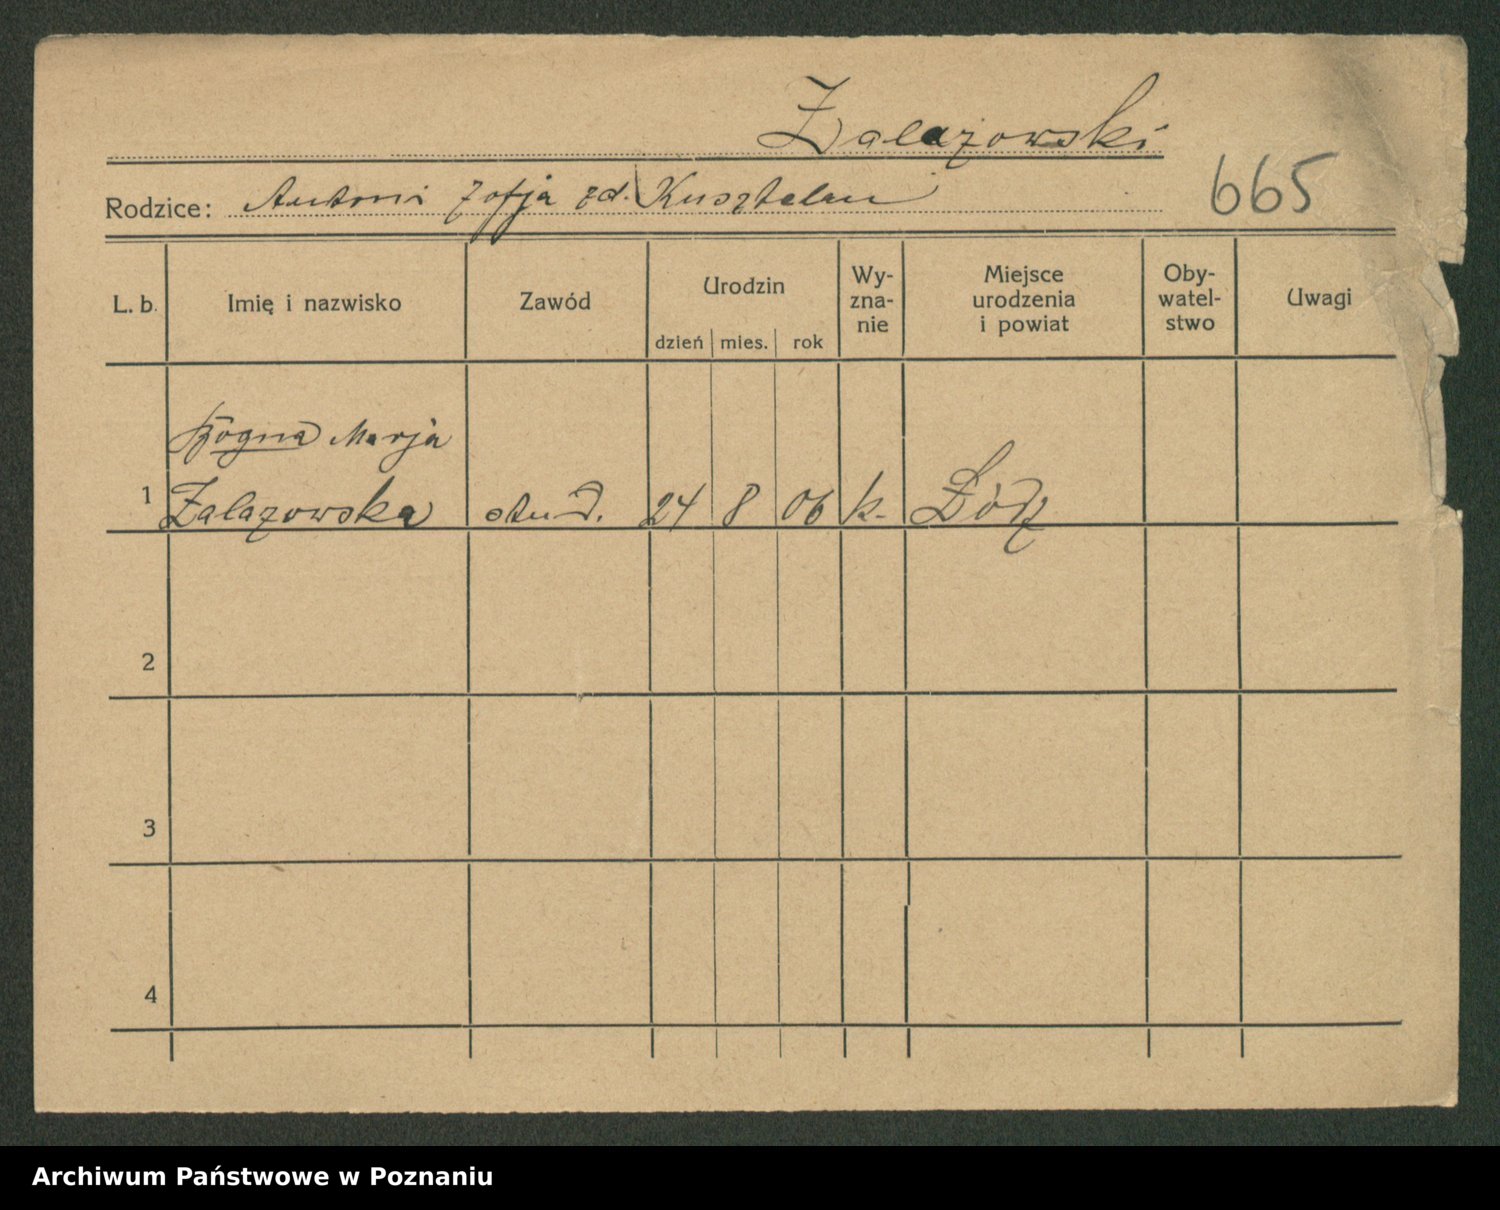 Zalazowski
Rodzice: Antoni Zofja zd. Kusztelan
665
L. b.
Imię i nazwisko
Zawód
Urodzin
dzień mies. rok
Wy-
zna-
nie
Miejsce
urodzenia
i powiat
Oby-
watel-
stwo
Uwagi
Bogna Marja
1 Zalazowska stud. 24 8 06 k. Łódź
2
3
4
Archiwum Państwowe w Poznaniu